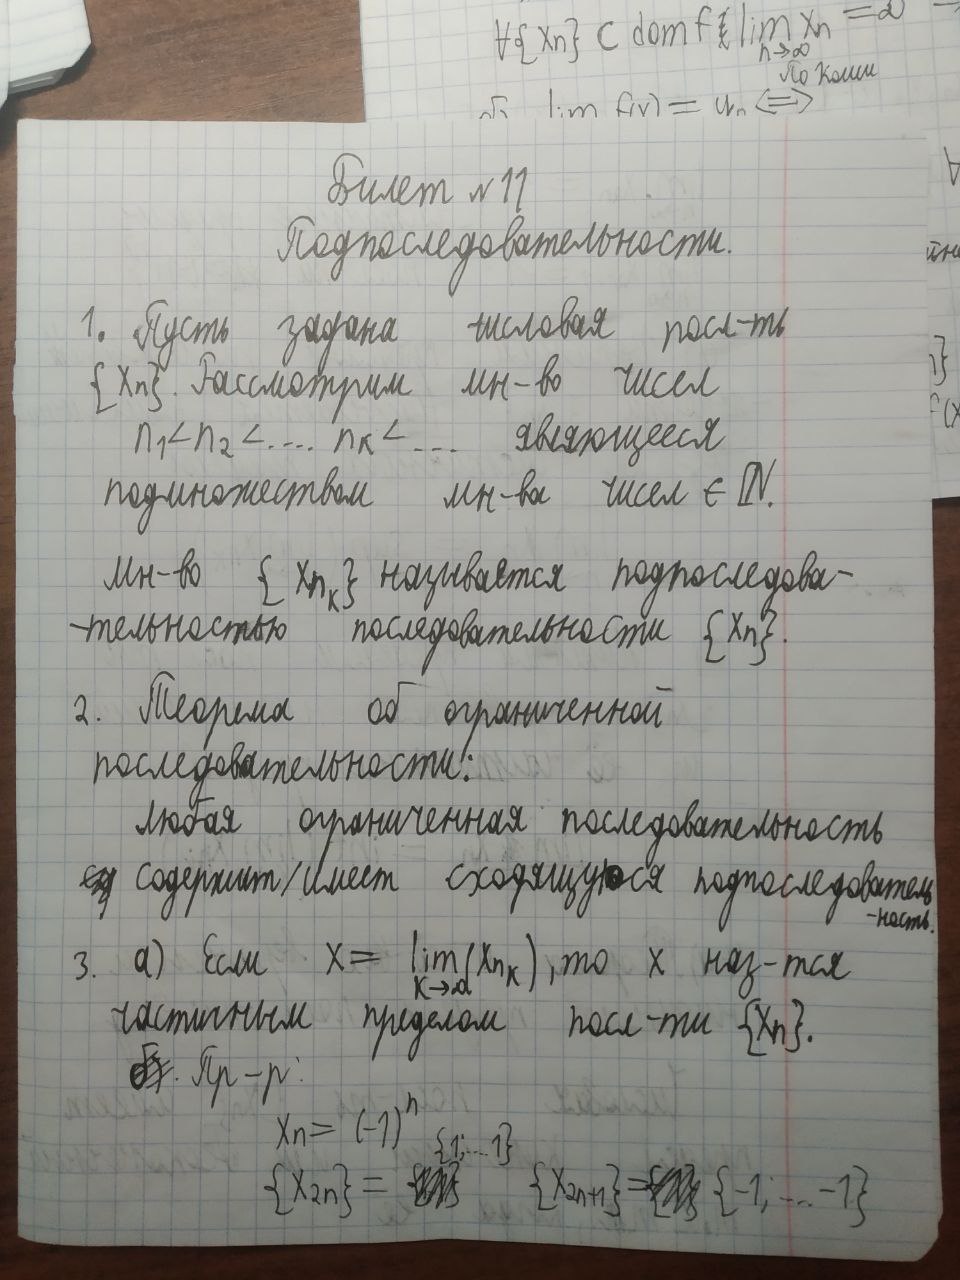 ∀{Xn} ⊂ dom f { lim Xn =
n→∞
По Коши
lim f(x) = ⟺
Билет №11
Подпоследовательности.
1. Пусть задана числовая посл-ть
{Xn}. Рассмотрим мн-во чисел
n₁<n₂<.... nₖ<... являющееся
подмножеством мн-ва чисел ∈ ℕ.
Мн-во {Xnₖ} называется подпоследова-
-тельностью последовательности {Xn}.
2. Теорема об ограниченной
последовательности:
Любая ограниченная последовательность
содержит/имеет сходящуюся подпоследователь
-ность.
3. а) Если X= lim(Xnₖ), то x наз-тся
k→∞
частичным пределом посл-ти {Xn}.
Пр-р:
Xn= (-1)ⁿ
{1;...1}
{X2n} = {X2n+1} = {-1;...-1}